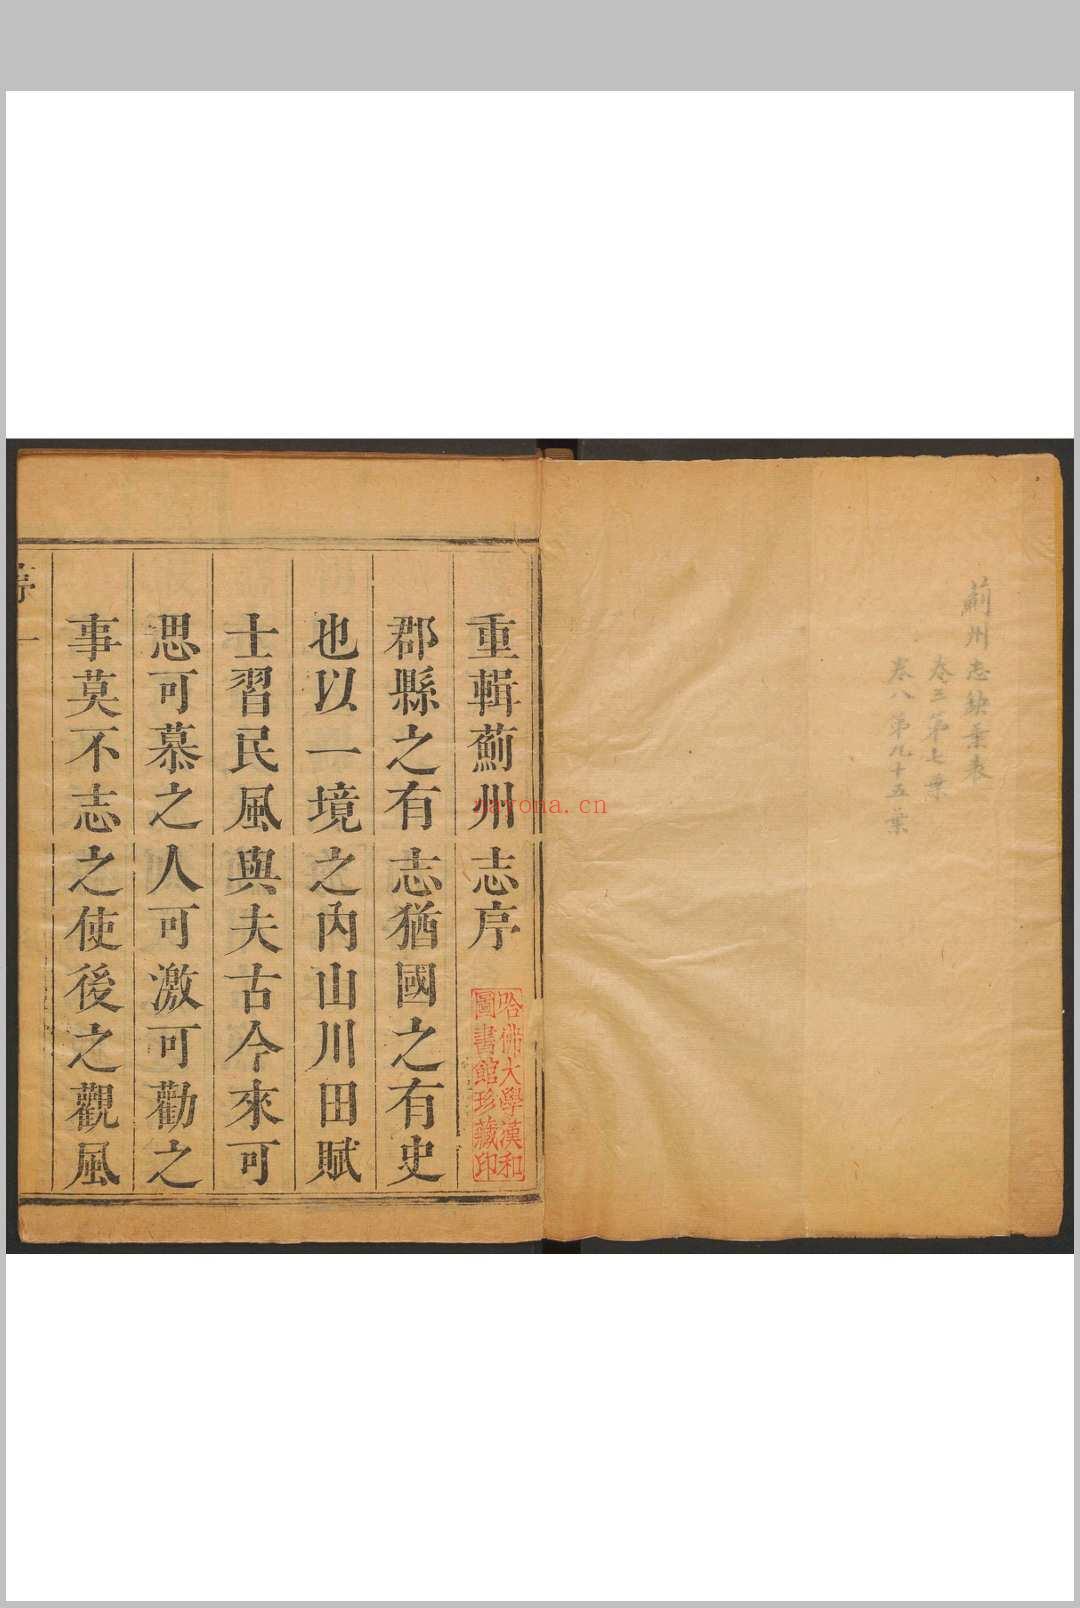 薊州志缺葉表
卷三第七葉
卷八 第九十五葉
重輯薊州志序
哈佛大學漢和
圖書館珍藏印
郡縣之有志猶國之有史
也以一境之內山川田賦
士習民風與夫古今來可
思可慕之人可激可勸之
事莫不志之使後之觀風
序 一
nayona.cn